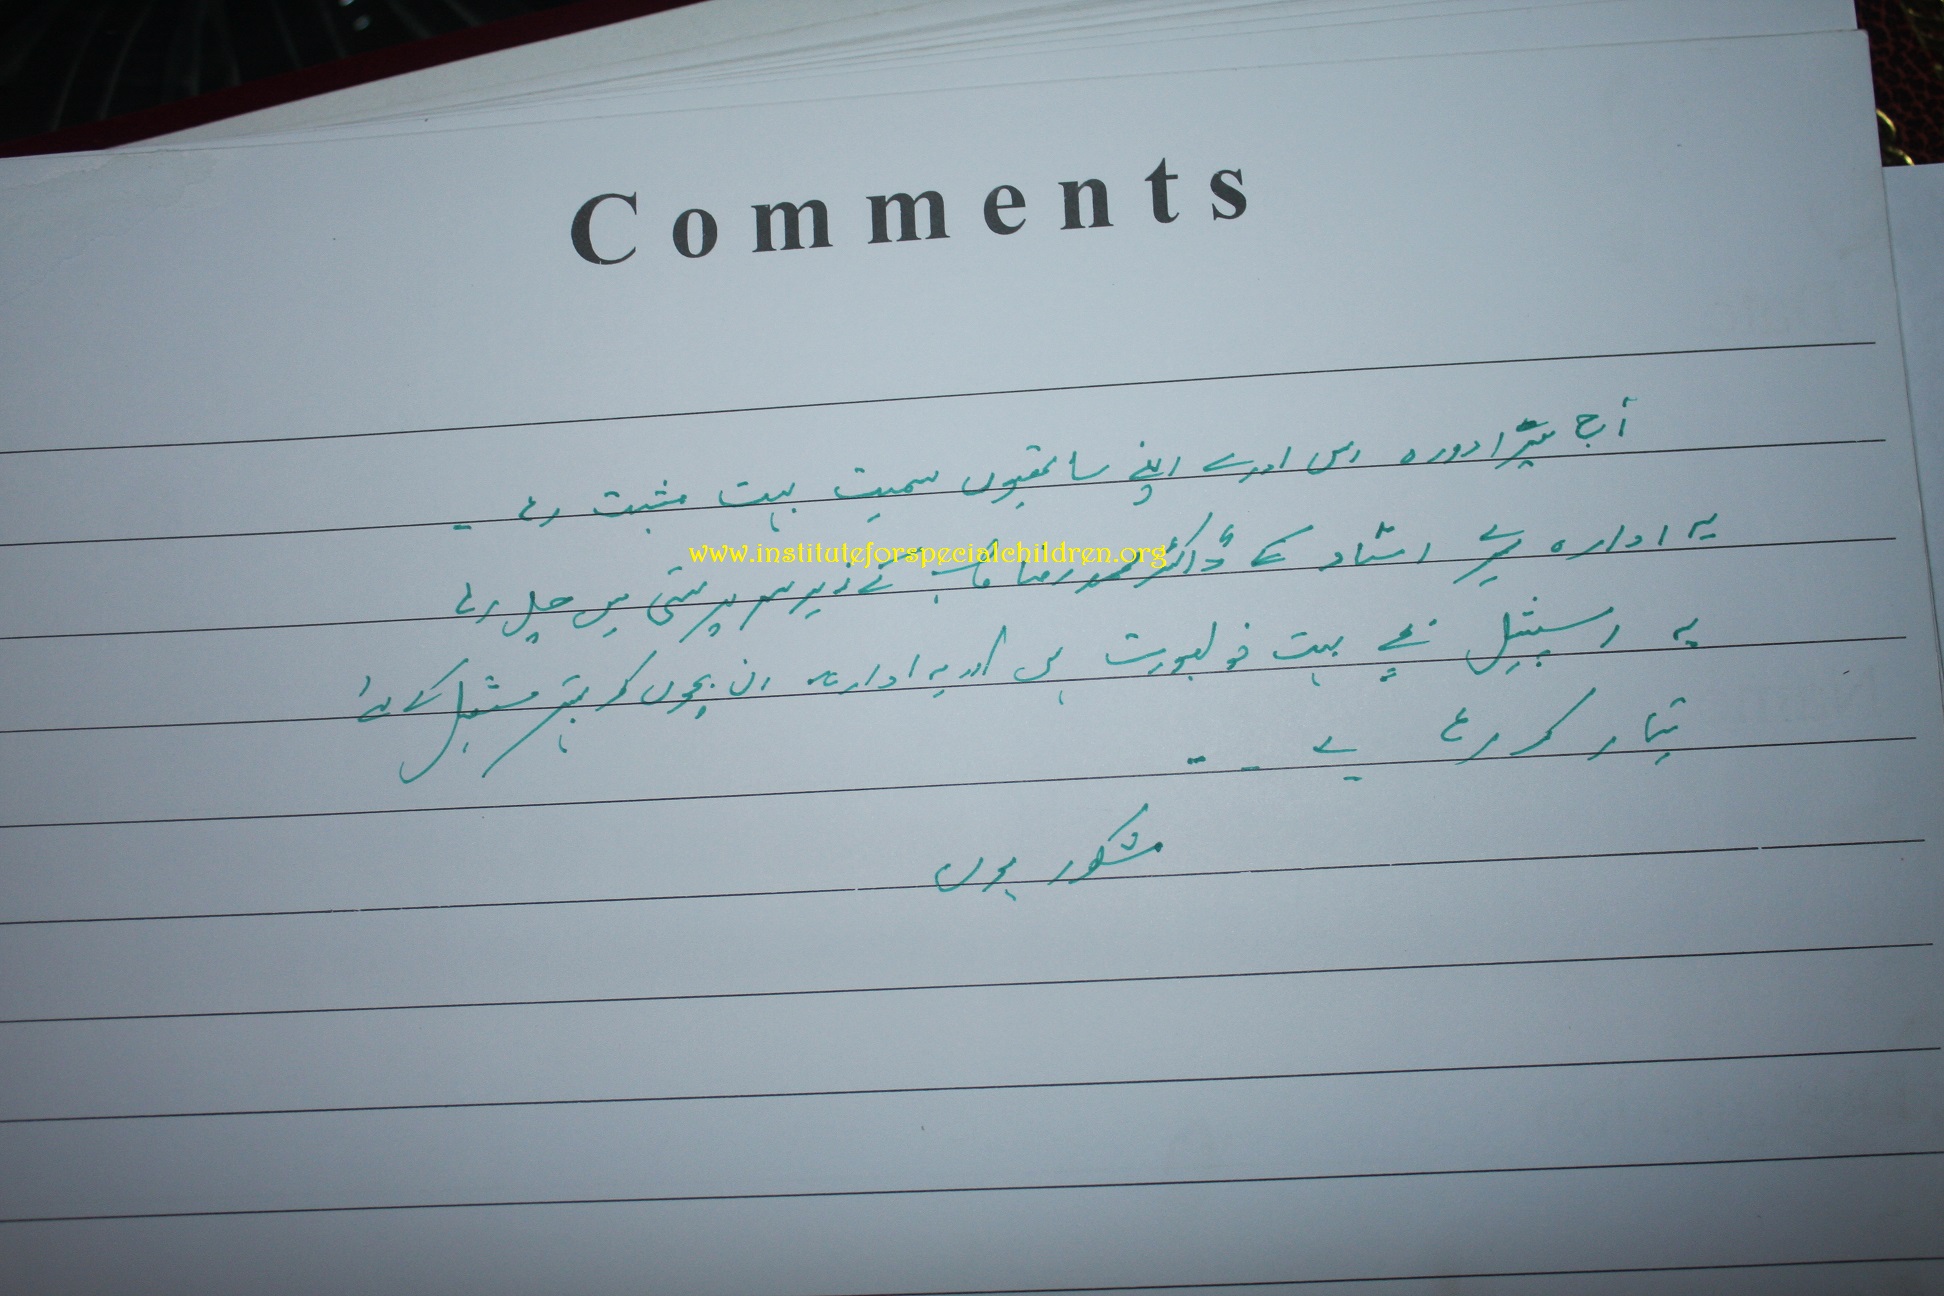 Comments
آج میرا دورہ اس ادارے اپنے ساتھیوں سمیت بہت مثبت رہے ۔
www.instituteforspecialchildren.org
یہ ادارہ میرے استاد کے ڈاکٹر کے زیر سرپرستی میں چل رہے
یہ اسپیشل بچے بہت خوبصورت ہیں اور یہ ادارہ ان بچوں کو بہتر مستقبل کے لئے
تیار کر رہے ہے ۔ ۔
مشکور ہوں